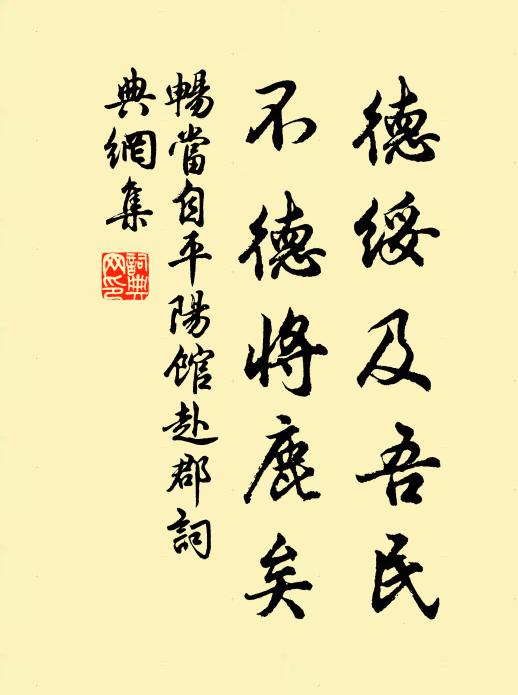 德綏及吾民
不德將鹿矣
暢當自平陽館赴郡詞
典網集
詞典网印